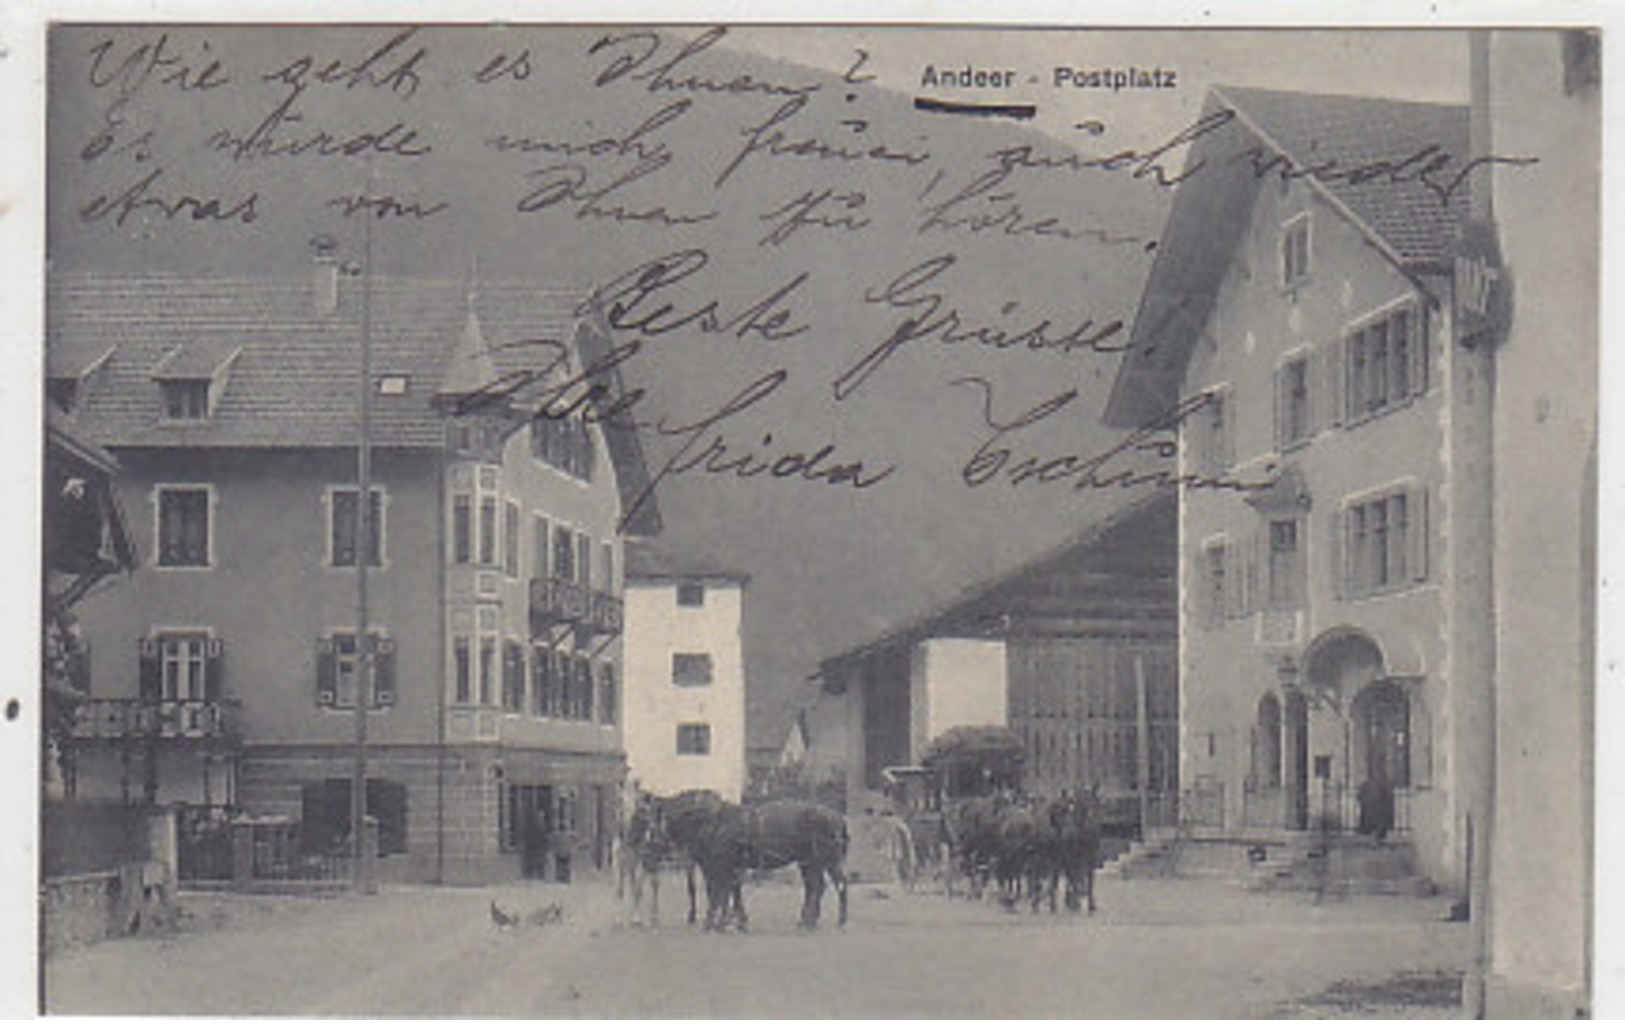 Wie geht es Ihnen?
Andeer - Postplatz
Es würde mich freuen, auch wieder
etwas von Ihnen zu hören.
Beste Grüsse!
Ihre
Frida